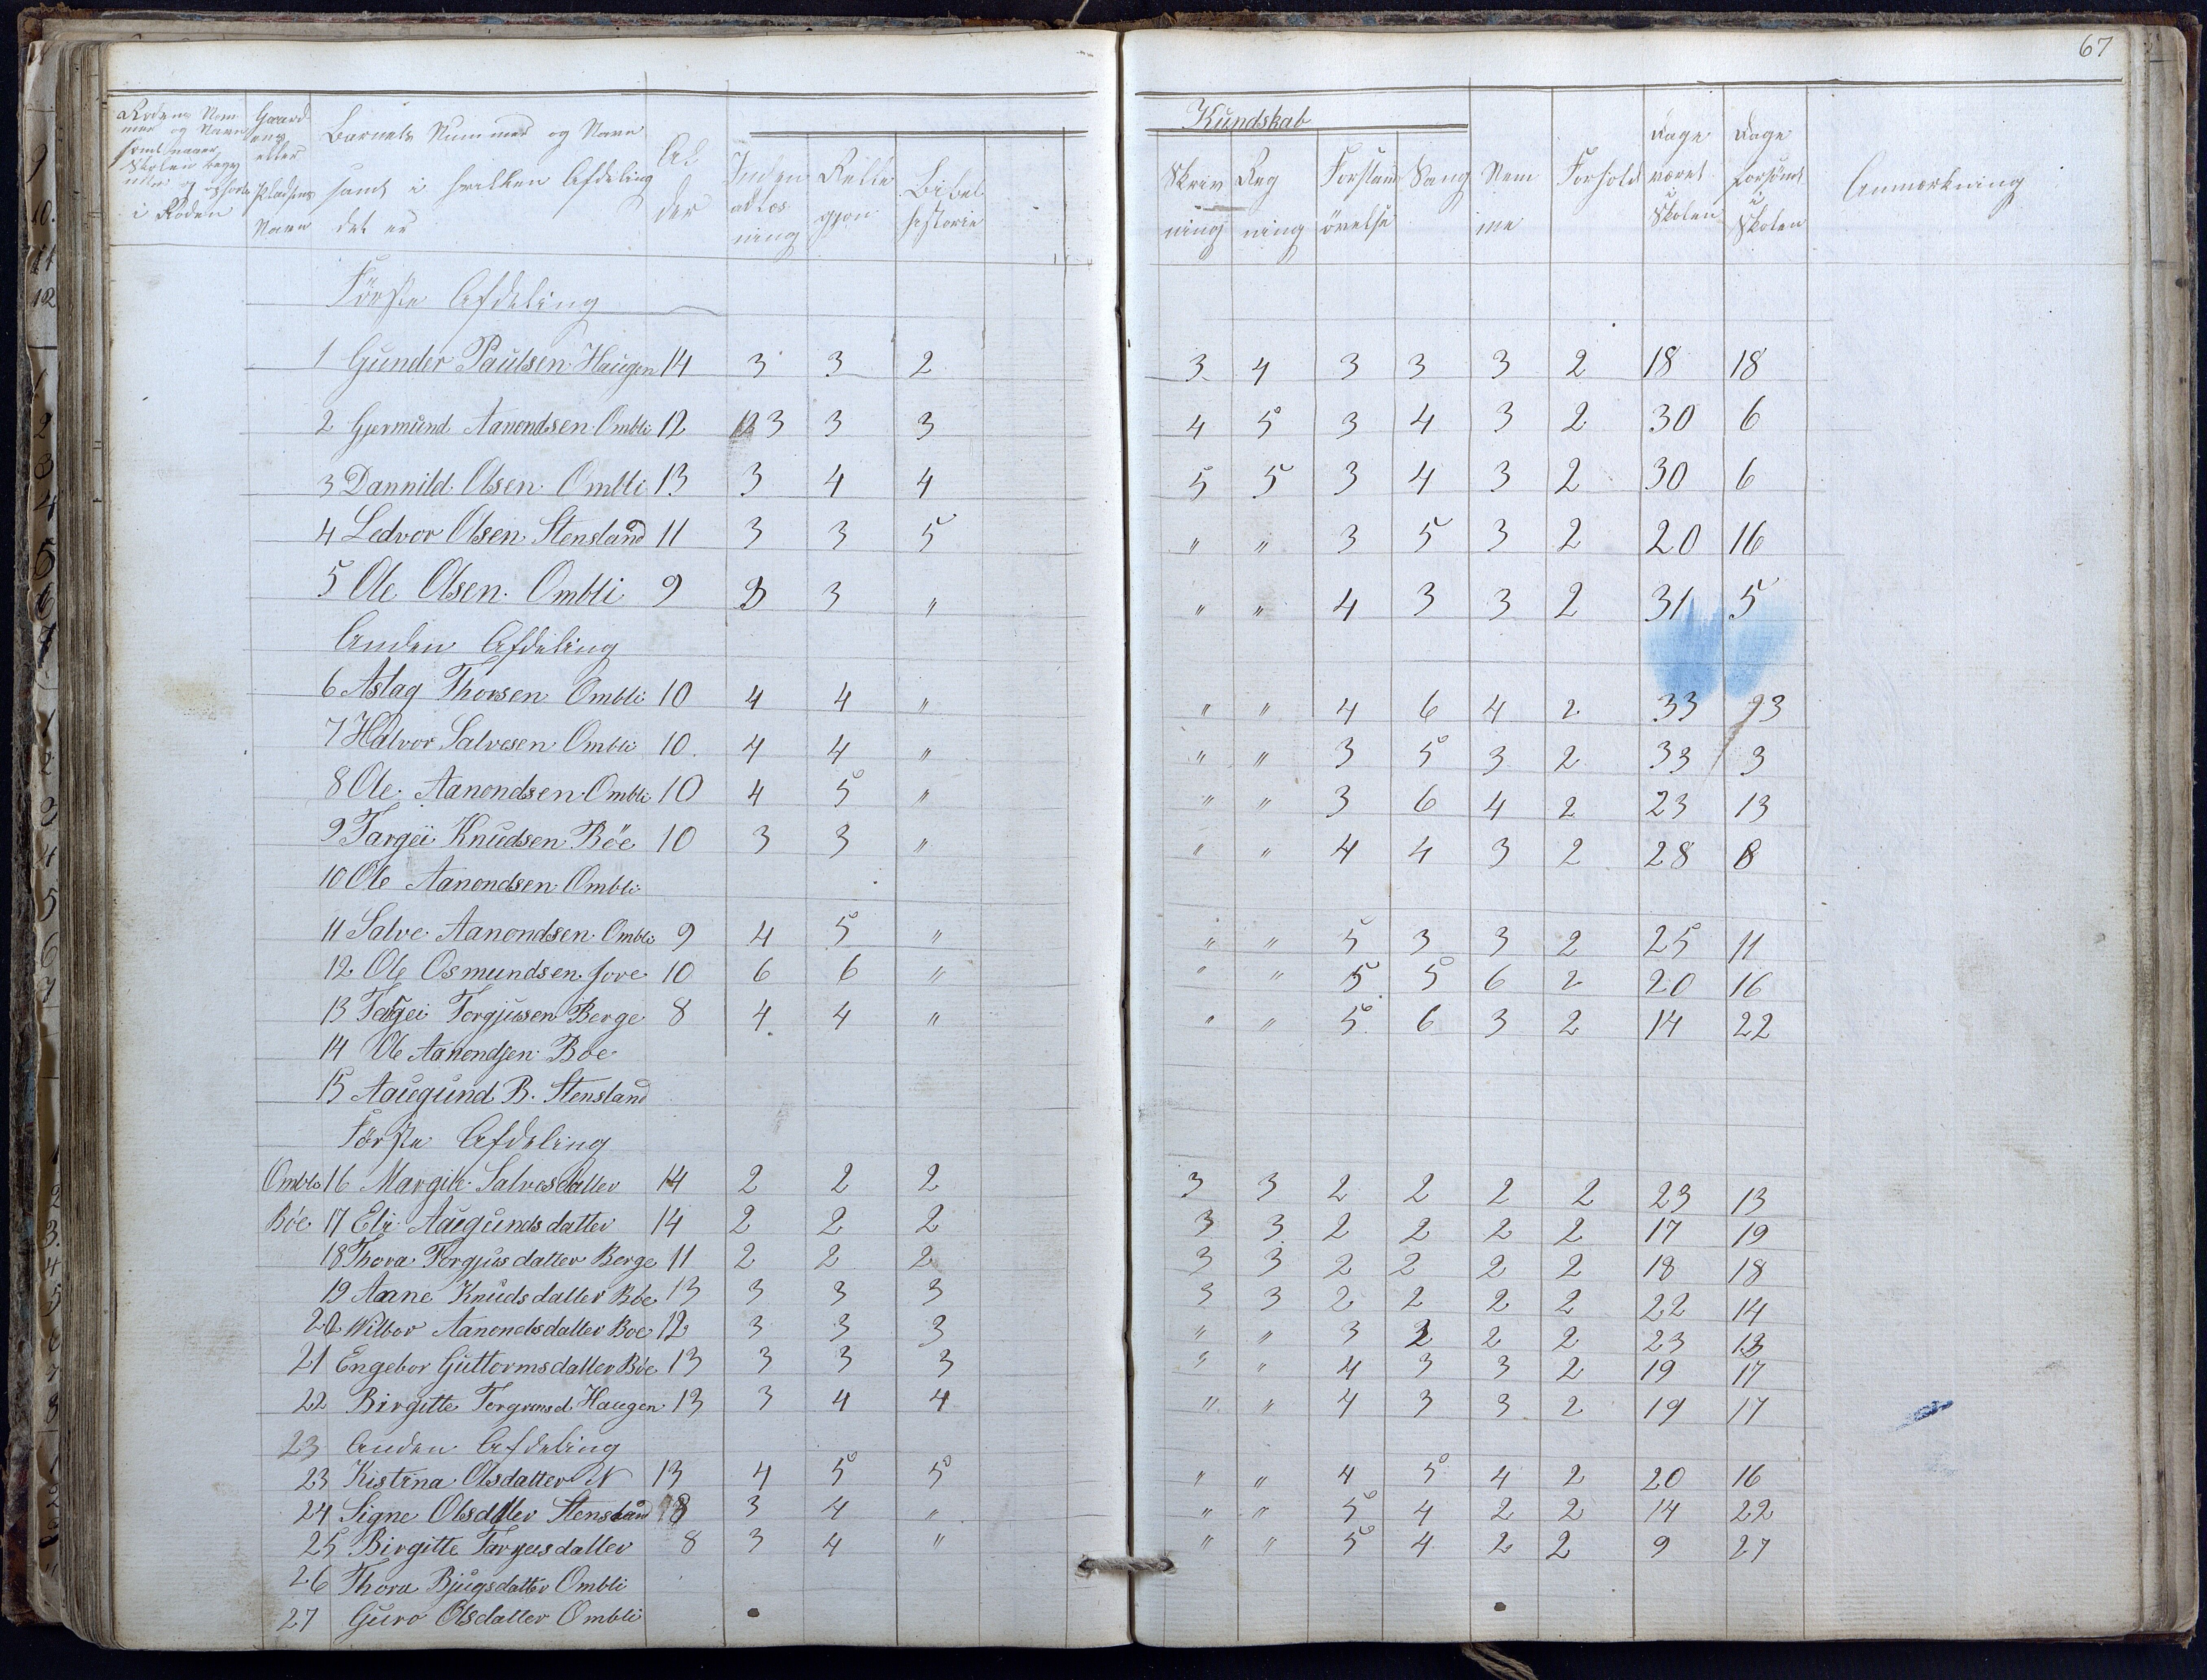 67
Rodens Nummer og Navn samt naar Skolen begyndte og ophørte i Roden | Gaardens eller Pladsens Navn | Barnets Nummer og Navn samt i hvilken Afdeling det er | Alder | Indenadlæsning | Religion | Bibelhistorie | Kundskab | Skrivning | Regning | Forstandsövelse | Sang | Nemme | Forhold | Dage været i Skolen | Dage forsömt i Skolen | Anmærkning
Förste Afdeling
1 Gunder Paulsen Haugen 14 3 3 2 3 4 3 3 3 2 18 18
2 Gjermund Aanondsen Ombli 12 3 3 3 4 5 3 4 3 2 30 6
3 Dannild Olsen Ombli 13 3 4 4 5 5 3 4 3 2 30 6
4 Ledvor Olsen Stensland 11 3 3 5 " " 3 5 3 2 20 16
5 Ole Olsen Ombli 9 3 3 " " " 4 3 3 2 31 5
Anden Afdeling
6 Aslag Thorsen Ombli 10 4 4 " " " 4 6 4 2 33 3
7 Halvor Salvesen Ombli 10 4 4 " " " 3 5 3 2 33 3
8 Ole Aanondsen Ombli 10 4 5 " " " 3 6 4 2 23 13
9 Targei Knudsen Böe 10 3 3 " " " 4 4 3 2 28 8
10 Ole Aanondsen Ombli
11 Salve Aanondsen Ombli 9 4 5 " " " 5 3 3 2 25 11
12 Ole Osmundsen Jore 10 6 6 " " " 5 5 6 2 20 16
13 Tergei Torgjusen Berge 8 4 4 " " " 5 6 3 2 14 22
14 Ole Aanondsen Boe
15 Aaugund B. Stensland
Förste Afdeling
Ombli 16 Margit Salvesdatter 14 2 2 2 3 3 2 2 2 2 23 13
Böe 17 Eli Aaugunds datter 14 2 2 2 3 3 2 2 2 2 17 19
18 Thora Torgjus datter Berge 11 2 2 2 3 3 2 2 2 2 18 18
19 Aane Knuds datter Böe 13 3 3 3 3 3 2 2 2 2 22 14
20 Wilbor Aanondsdatter Boe 12 3 3 3 " " 3 2 2 2 23 13
21 Engebor Guttormsdatter Böe 13 3 3 3 " " 4 3 3 2 19 17
22 Birgitte Torgrimsd. Haugen 13 3 4 4 " " 4 3 3 2 19 17
23 Anden Afdeling
23 Kistina Olsdatter N 13 4 5 5 " " 4 5 4 2 20 16
24 Signe Olsdatter Stensland 8 3 4 " " " 5 4 2 2 14 22
25 Birgitte Targusdatter 8 3 4 " " " 5 4 2 2 9 27
26 Thora Bjugsdatter Ombli
27 Guro Olsdatter Ombli